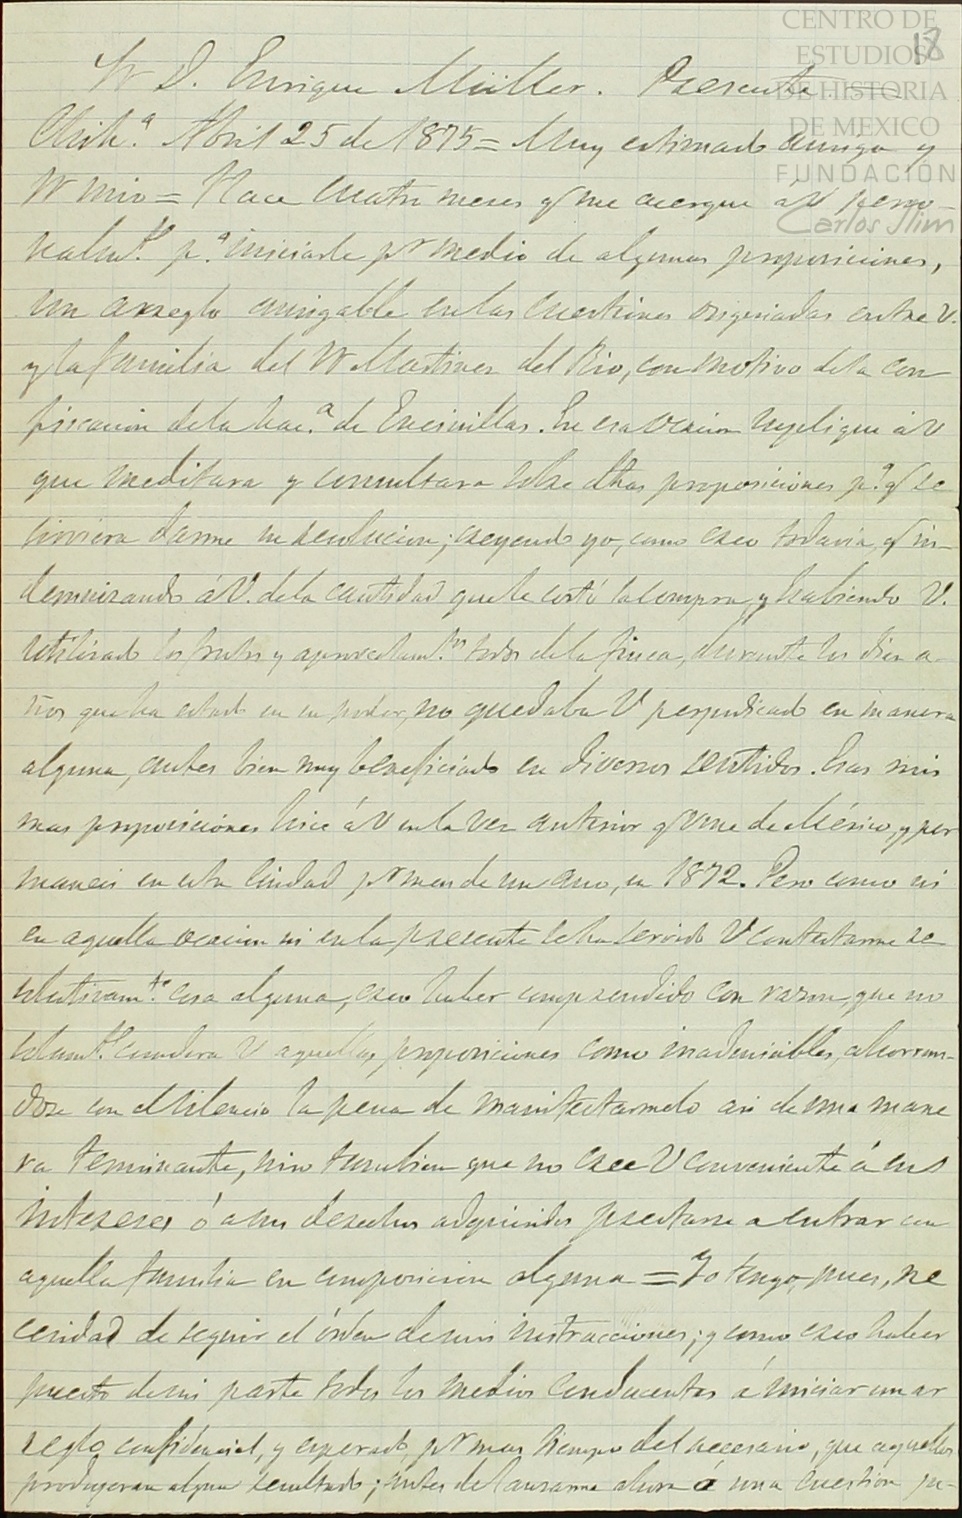 CENTRO DE
ESTUDIOS
DE HISTORIA
DE MEXICO
FUNDACIÓN
Carlos Slim
18
Sr D. Enrique Müller. Presente
Chih.ª Abril 25 de 1875 = Muy estimado amigo y
Sr mio = Hace cuatro meses q me acerqué á V perso-
nalm.te p.ª iniciarle pr medio de algunas proposiciones,
un arreglo amigable en las cuestiones originadas entre V.
y la familia del Sr Martinez del Rio, con motivo de la con
fiscacion de la hac.ª de Encinillas. En esa ocasion supliqué á V
que meditara y consultara sobre dhas proposiciones p.ª q se
sirviera darme su resolucion; creyendo yo, como creo todavia, q in-
demnizando á V. de la cantidad que le costó la compra, y habiendo V.
utilizado los frutos y aprovecham.tos todos de la finca, durante los diez a-
ños que ha estado en su poder, no quedaba V perjudicado en manera
alguna, antes bien muy beneficiado en diversos sentidos. Esas mis
mas proposiciones hice á V en la vez anterior q vine de México, y per
maneci en esta Ciudad pr mas de un año, en 1872. Pero como ni
en aquella ocasion ni en la presente se ha servido V contestarme re
solutivam.te cosa alguna, creo haber comprendido con razon, que no
solam.te considera V aquellas proposiciones como inadmisibles, ahorran-
dose con el silencio la pena de manifestarmelo asi de una mane
ra terminante, sino tambien que no cree V conveniente á sus
intereses ó a sus derechos adquiridos prestarse a entrar con
aquella familia en composicion alguna = Yo tengo, pues, ne
cesidad de seguir el órden de mis instrucciones; y como creo haber
puesto de mi parte todos los medios conducentes á iniciar un ar
reglo confidencial, y esperado pr mas tiempo del necesario, que aquellos
produgeran algun resultado; antes de lanzarme ahora á una cuestion ju-